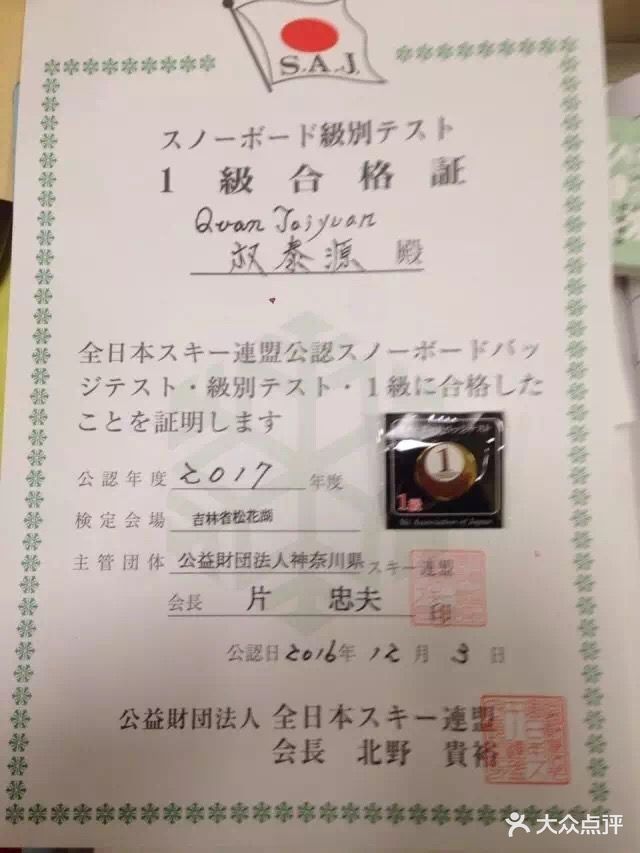 S.A.J.
スノーボード級別テスト
1級合格証
Quan Taiyuan
权泰源 殿
全日本スキー連盟公認スノーボードバッ
ジテスト・級別テスト・1級に合格した
ことを証明します
公認年度 2017 年度
検定会場 吉林省松花湖
主管団体 公益財団法人神奈川県スキー連盟
会長 片 忠夫 印
公認日2016年12月3日
公益財団法人 全日本スキー連盟
会長 北野 貴裕
1
1級
Ski Association of Japan
大众点评